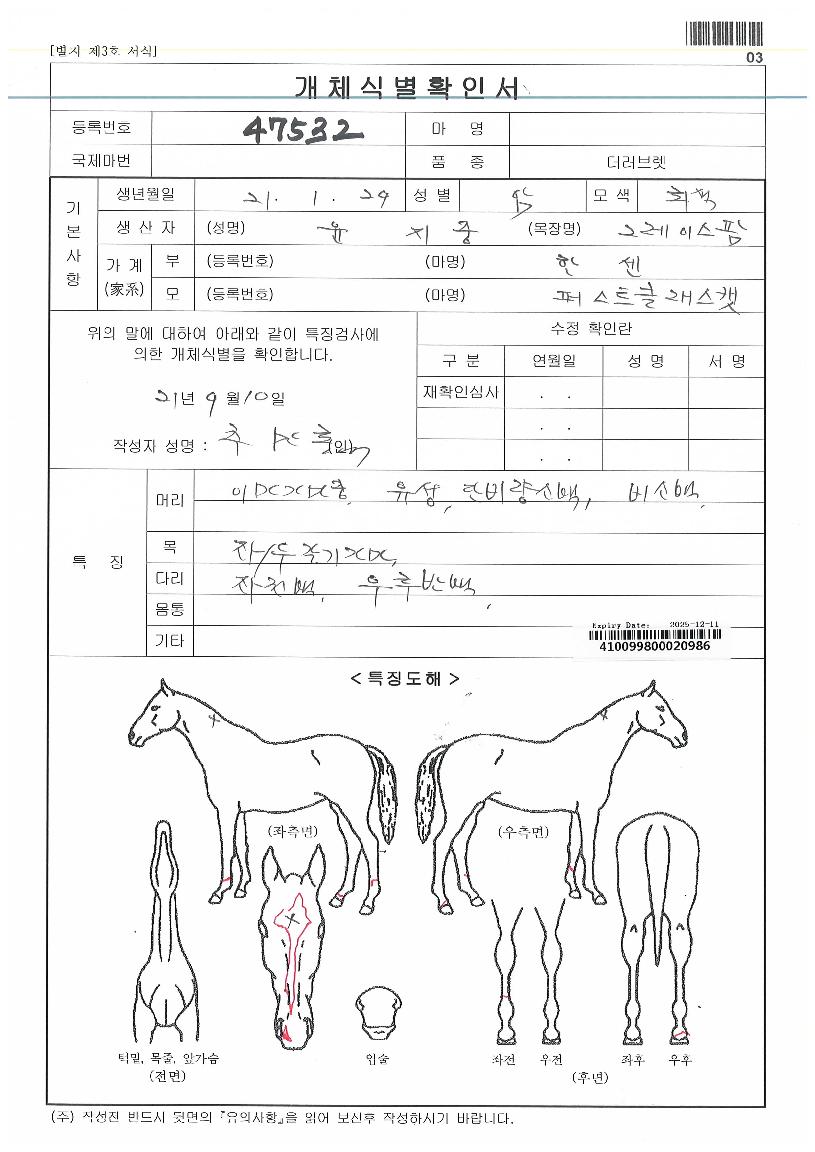 [별지 제3호 서식]
03
개체식별확인서
등록번호 47532 마 명
국제마번 품 종 더러브렛
기본사항
생년월일 21. 1. 29 성 별 암 모 색 회색
생 산 자 (성명) 윤 지 중 (목장명) 그레이스팜
가 계 (家系) 부 (등록번호) (마명) 한 센
모 (등록번호) (마명) 퍼스트클래스캣
위의 말에 대하여 아래와 같이 특징검사에
의한 개체식별을 확인합니다.
21년 9월 10일
작성자 성명 : 추 (인)
수정 확인란
구 분 연월일 성 명 서 명
재확인심사 . .
. .
. .
특 징
머리 유성, 비신백,
목
다리
몸통
기타
Expiry Date: 2025-12-11
410099800020986
< 특징도해 >
(좌측면) (우측면)
턱밑, 목줄, 앞가슴 입술 좌전 우전 좌후 우후
(전면) (후면)
(주) 작성전 반드시 뒷면의 『유의사항』을 읽어 보신후 작성하시기 바랍니다.